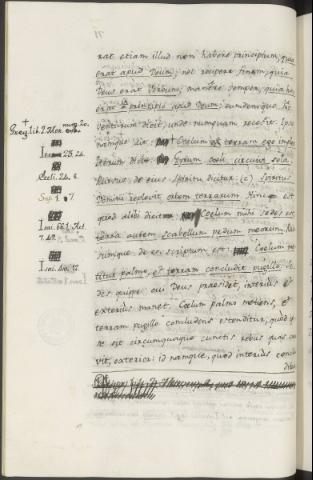 rat etiam illud non habere principium, quia
erat apud Deum; nec
Deus erat Verbum, manere semper, quia hoc
erat in principio apud Deum;
venturum dicit, unde numquam recessit. Ipse
namque ait: Cœlum et terram ego impleo
Iterum dicit: Gyrum cœli circuivi sola
Rursus, de ejus Spiritu dicitur: (c) Spiritus
Domini replevit orbem terrarum. Hinc est
quod alibi dicit: Cœlum mihi sedes est,
terra autem scabellum pedum meorum. Rur
sumque de eo scriptum est: Cœlum me
titur palmo, et terram concludit pugillo. Se
des quippe cui Deus præsidet, interius et
exterius manet. Cœlum palmo metiens, et
terram pugillo concludens ostenditur, quod ip
se sit circumquaque cunctis rebus quas cre
avit, exterior: id namque, quod interius conclu
ditur
Greg. lib. 2. Mor. num. 20.
Jerem. 23. 24.
Eccli. 24. 8.
Sap. 1. 7.
Isai. 66. 1. Act.
7. 49.
Isai. 40. 12.